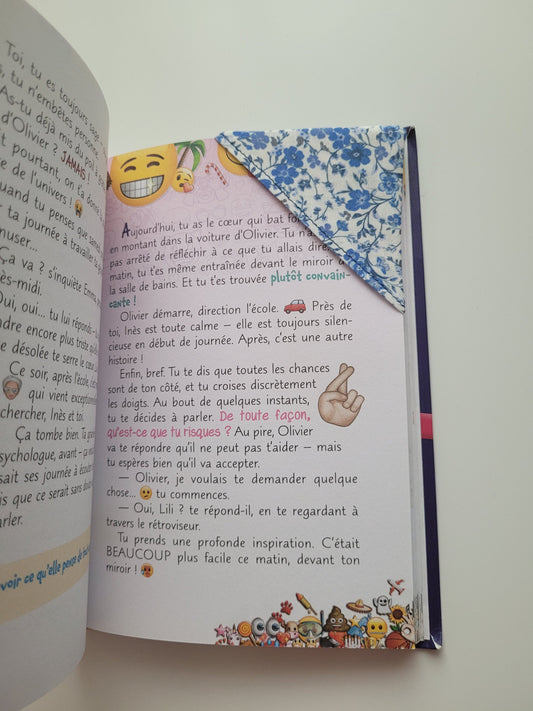 Toi, tu es toujours sage
tu n'embêtes personne
As-tu déjà mis du poil à
d'Olivier ? JAMAIS !
pourtant, on t'a donné
de l'univers !
quand tu penses que samedi
ta journée à travailler
Ça va ? s'inquiète Emma
Oui, oui... tu lui réponds
encore plus triste
désolée te serre le cœur
Ce soir, après l'école, c'est
qui vient exceptionnel
chercher, Inès et toi.
Ça tombe bien. Ta
psychologue, avant – ça
sait ses journées à écouter
que ce serait sans doute
parler.
voir ce qu'elle pense de
Aujourd'hui, tu as le cœur qui bat fort
en montant dans la voiture d'Olivier. Tu n'a
pas arrêté de réfléchir à ce que tu allais dire.
matin, tu t'es même entraînée devant le miroir d
la salle de bains. Et tu t'es trouvée plutôt convain-
cante !
Olivier démarre, direction l'école. Près de
toi, Inès est toute calme – elle est toujours silen-
cieuse en début de journée. Après, c'est une autre
histoire !
Enfin, bref. Tu te dis que toutes les chances
sont de ton côté, et tu croises discrètement
les doigts. Au bout de quelques instants,
tu te décides à parler. De toute façon,
qu'est-ce que tu risques ? Au pire, Olivier
va te répondre qu'il ne peut pas t'aider – mais
tu espères bien qu'il va accepter.
— Olivier, je voulais te demander quelque
chose... tu commences.
— Oui, Lili ? te répond-il, en te regardant à
travers le rétroviseur.
Tu prends une profonde inspiration. C'était
BEAUCOUP plus facile ce matin, devant ton
miroir !